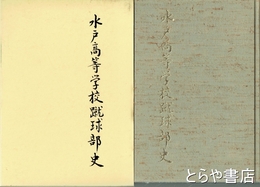 水戸高等学校蹴球部史
水戸高等学校蹴球部史
とらや書店